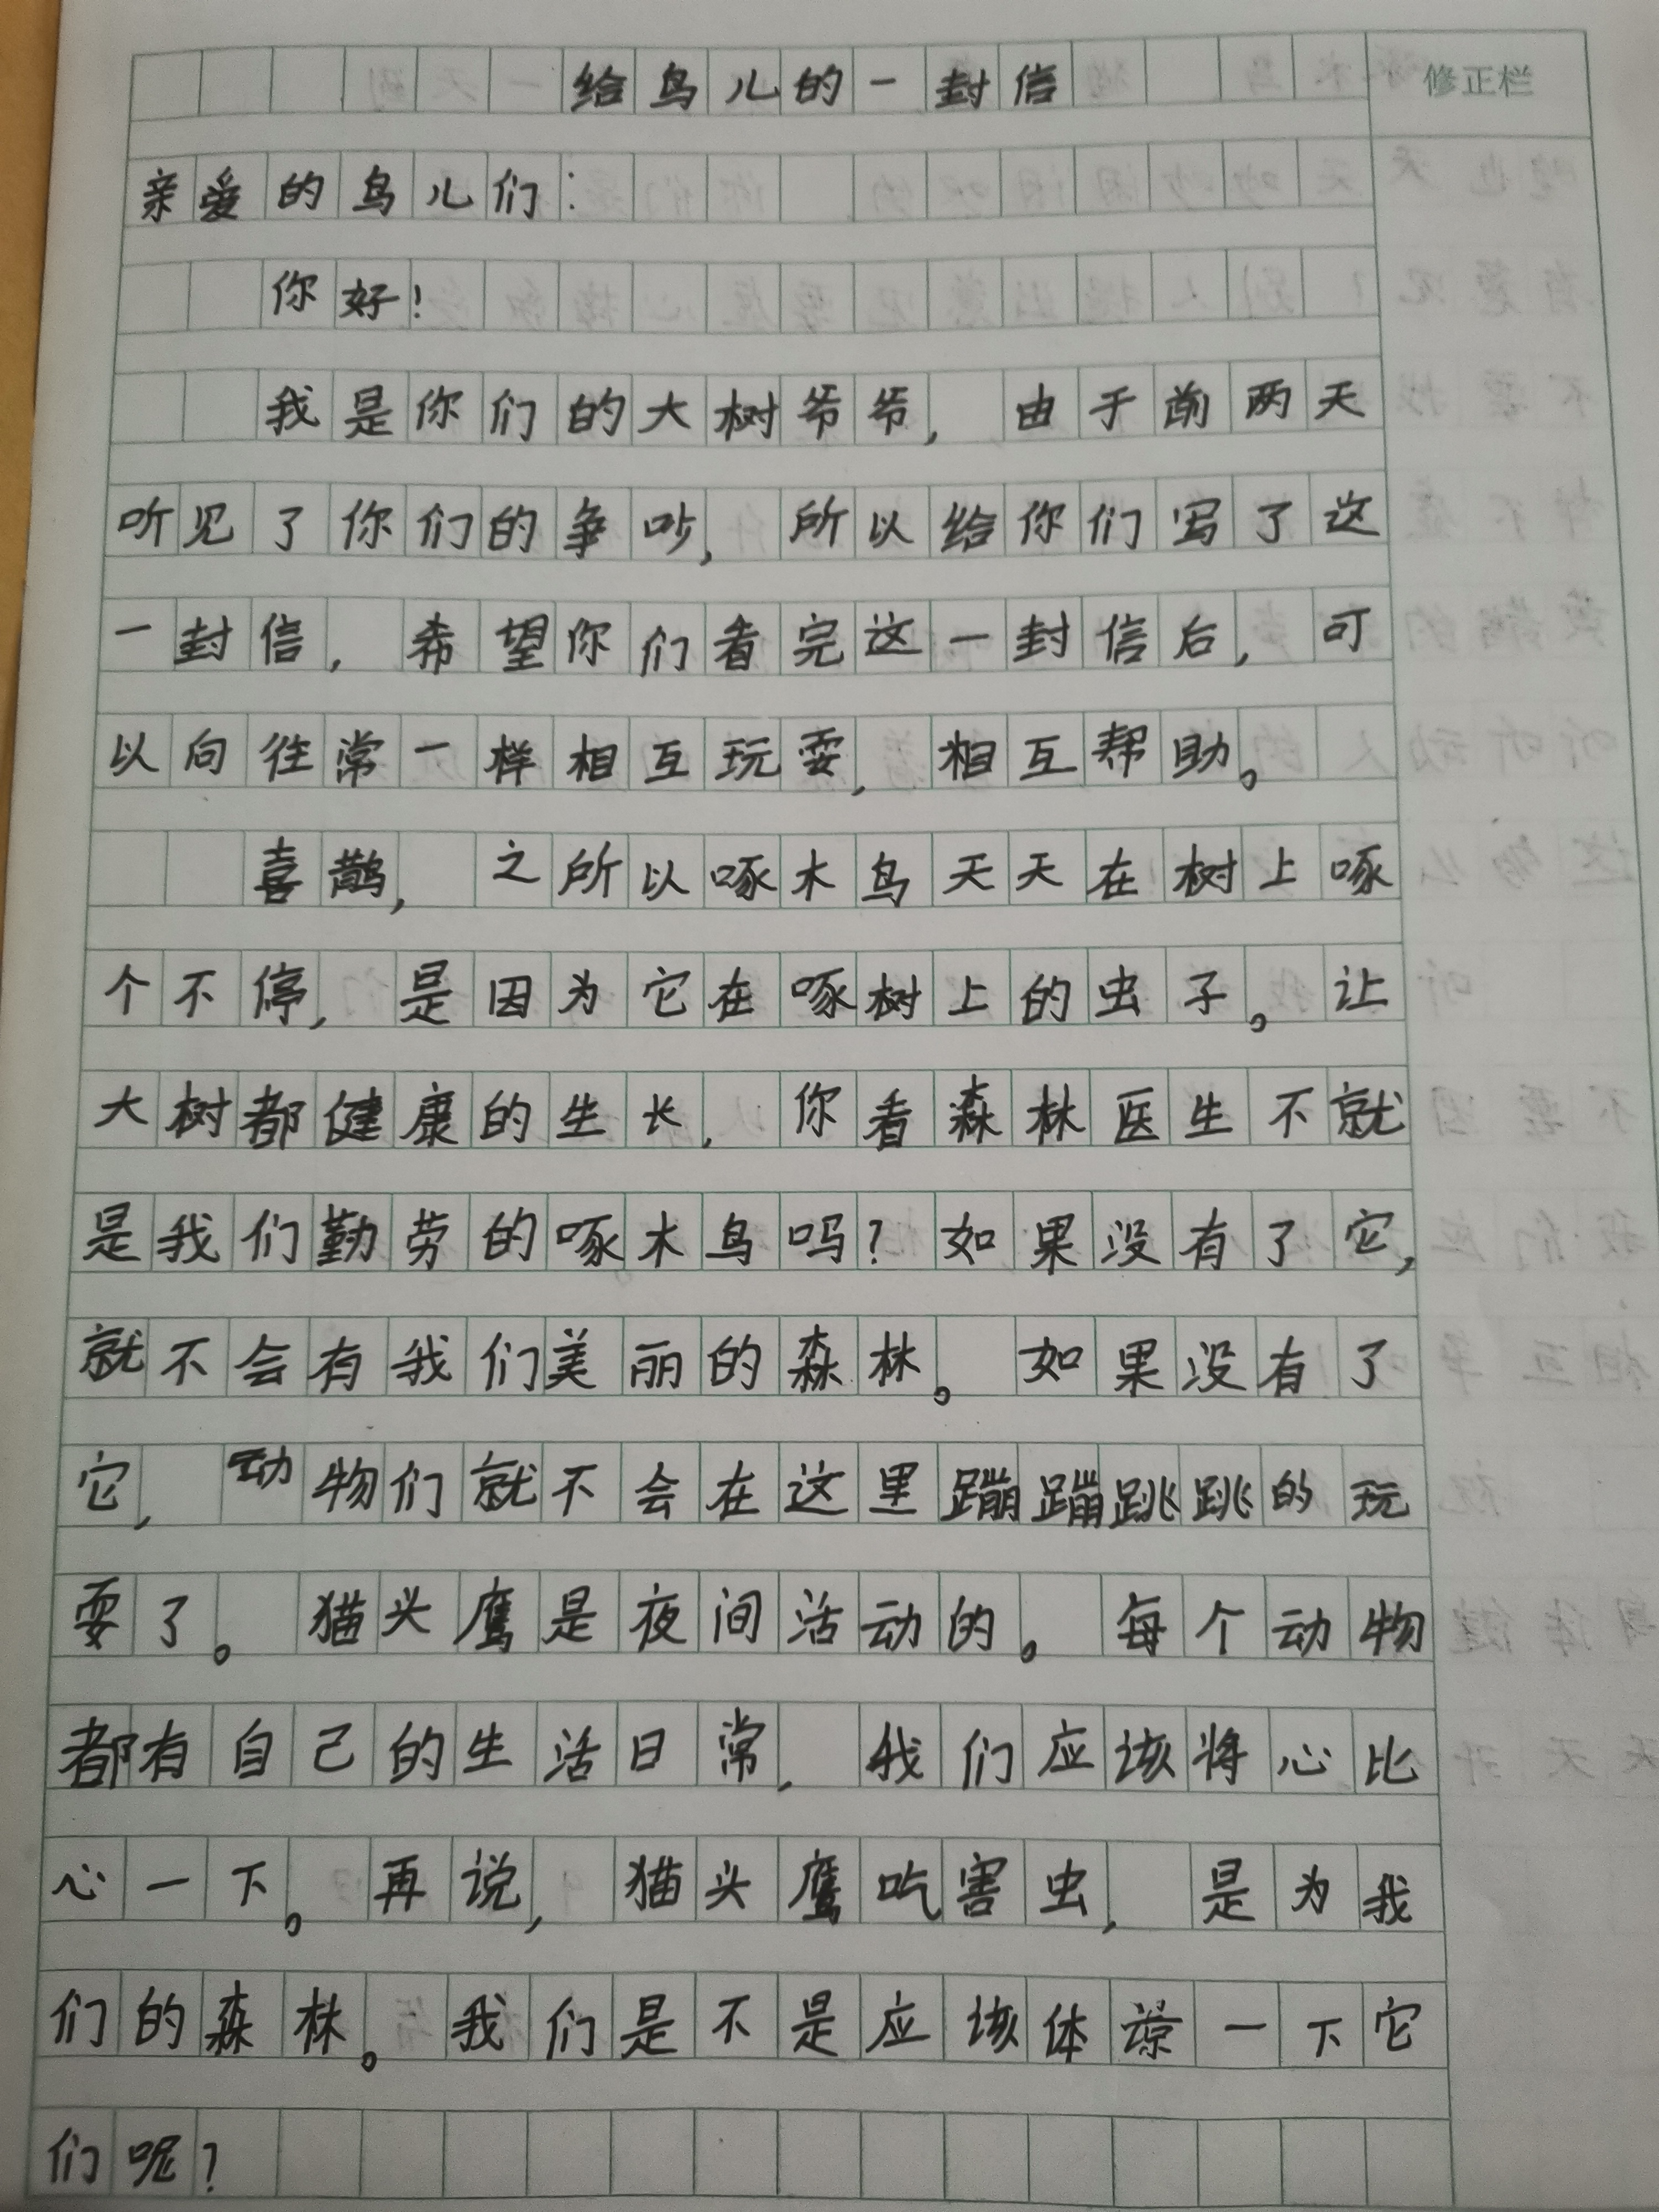 给鸟儿的一封信
修正栏
亲爱的鸟儿们：
你好！
我是你们的大树爷爷，由于前两天
听见了你们的争吵，所以给你们写了这
一封信，希望你们看完这一封信后，可
以向往常一样相互玩耍，相互帮助。
喜鹊，之所以啄木鸟天天在树上啄
个不停，是因为它在啄树上的虫子。让
大树都健康的生长，你看森林医生不就
是我们勤劳的啄木鸟吗？如果没有了它，
就不会有我们美丽的森林。如果没有了
它，动物们就不会在这里蹦蹦跳跳的玩
耍了。猫头鹰是夜间活动的。每个动物
都有自己的生活日常，我们应该将心比
心一下。再说，猫头鹰吃害虫，是为我
们的森林。我们是不是应该体谅一下它
们呢？